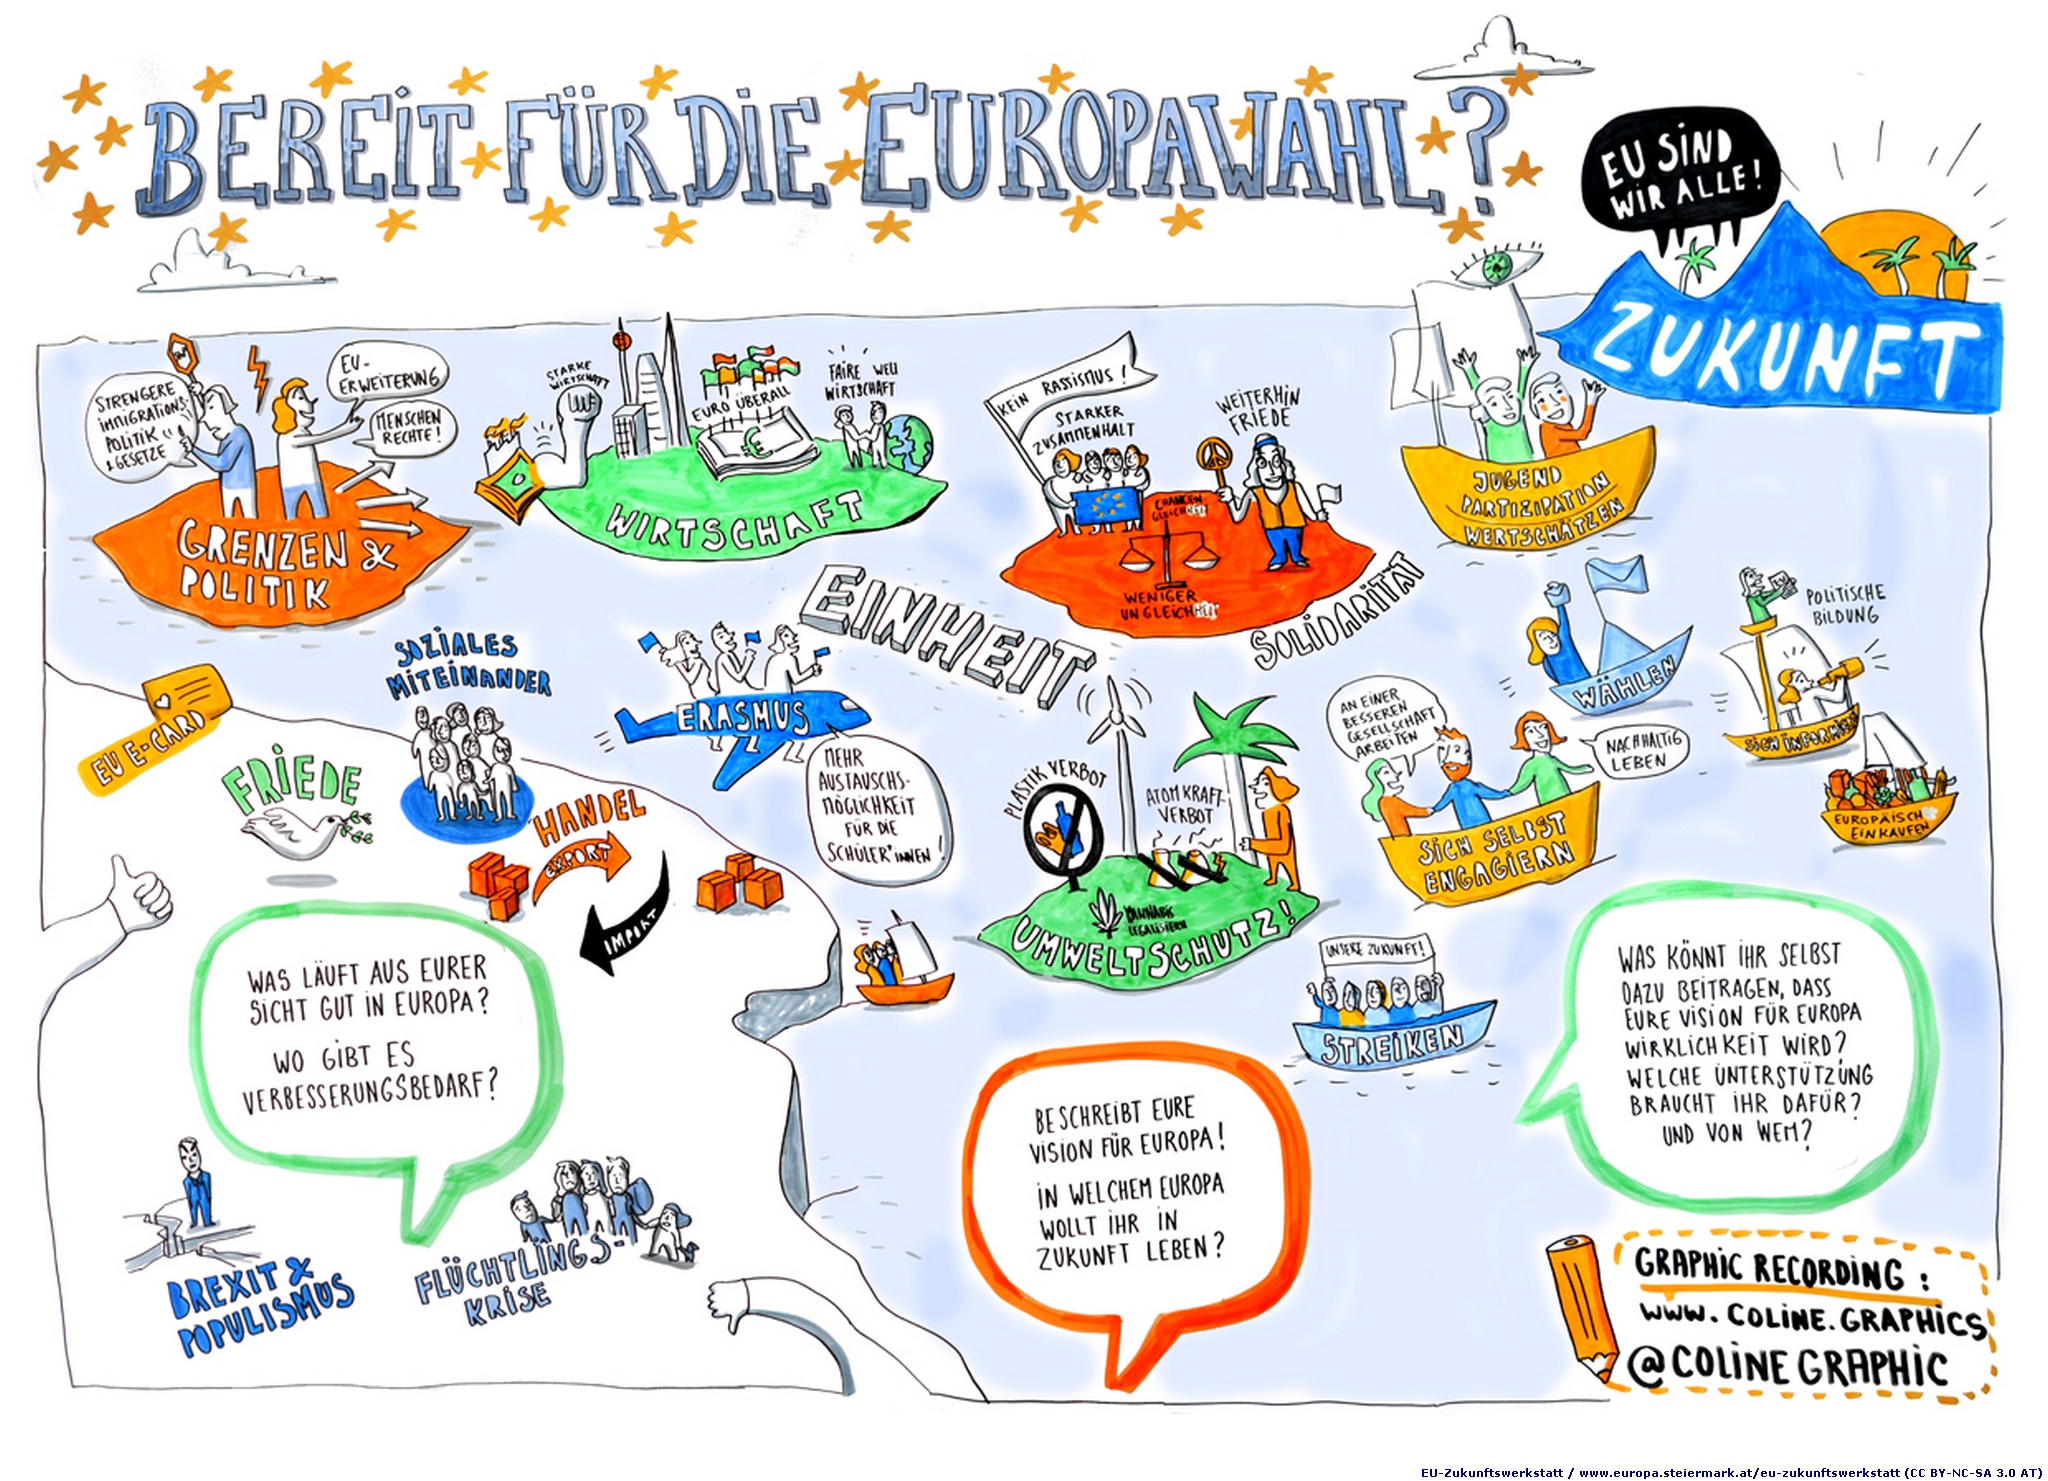 BEREIT FÜR DIE EUROPAWAHL?
EU SIND
WIR ALLE!
ZUKUNFT
STRENGERE
IMMIGRATIONS-
POLITIK
& GESETZE
EU-
ERWEITERUNG
MENSCHEN
RECHTE!
GRENZEN &
POLITIK
STARKE
WIRTSCHAFT
EURO ÜBERALL
FAIRE WELT
WIRTSCHAFT
WIRTSCHAFT
KEIN RASSISMUS!
STARKER
ZUSAMMENHALT
WEITERHIN
FRIEDE
CHANCEN-
GLEICHHEIT
WENIGER
UNGLEICHHEIT
SOLIDARITÄT
EINHEIT
JUGEND
PARTIZIPATION
WERTSCHÄTZEN
WÄHLEN
POLITISCHE
BILDUNG
SICH INFORMIEREN
EUROPÄISCH
EINKAUFEN
AN EINER
BESSEREN
GESELLSCHAFT
ARBEITEN
NACHHALTIG
LEBEN
SICH SELBST
ENGAGIERN
UNSERE ZUKUNFT!
STREIKEN
EU E-CARD
SOZIALES
MITEINANDER
FRIEDE
HANDEL
EXPORT
IMPORT
ERASMUS
MEHR
AUSTAUSCHS-
MÖGLICHKEIT
FÜR DIE
SCHÜLER*INNEN!
PLASTIK VERBOT
ATOMKRAFT-
VERBOT
CANNABIS
LEGALISIEREN
UMWELTSCHUTZ!
WAS LÄUFT AUS EURER
SICHT GUT IN EUROPA?
WO GIBT ES
VERBESSERUNGSBEDARF?
BREXIT &
POPULISMUS
FLÜCHTLINGS-
KRISE
BESCHREIBT EURE
VISION FÜR EUROPA!
IN WELCHEM EUROPA
WOLLT IHR IN
ZUKUNFT LEBEN?
WAS KÖNNT IHR SELBST
DAZU BEITRAGEN, DASS
EURE VISION FÜR EUROPA
WIRKLICHKEIT WIRD?
WELCHE UNTERSTÜTZUNG
BRAUCHT IHR DAFÜR?
UND VON WEM?
GRAPHIC RECORDING:
WWW.COLINE.GRAPHICS
@COLINEGRAPHIC
EU-Zukunftswerkstatt / www.europa.steiermark.at/eu-zukunftswerkstatt (CC BY-NC-SA 3.0 AT)